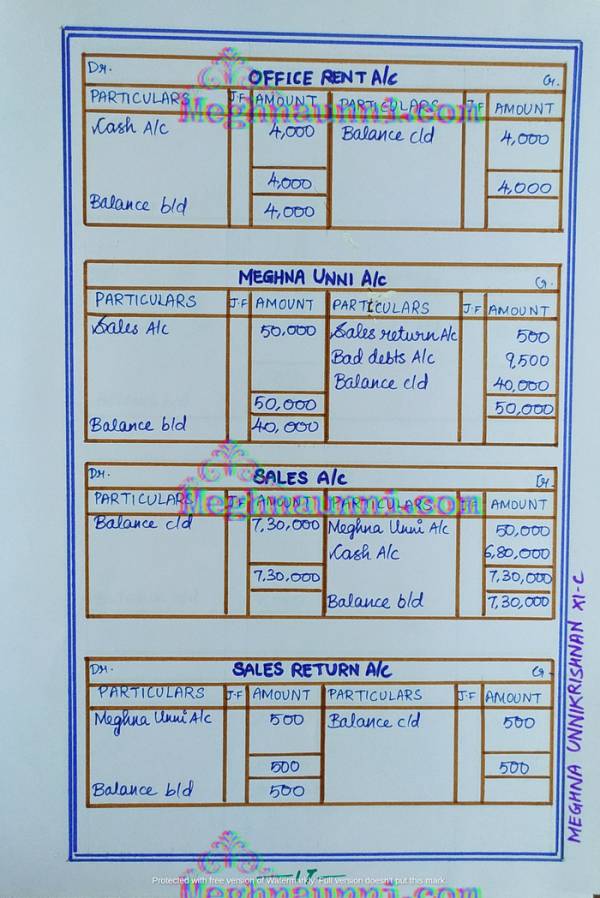 Dr. OFFICE RENT A/c Cr.
PARTICULARS J.F AMOUNT PARTICULARS J.F AMOUNT
Cash A/c 4,000 Balance c/d 4,000
4,000 4,000
Balance b/d 4,000
MEGHNA UNNI A/c Cr.
PARTICULARS J.F AMOUNT PARTICULARS J.F AMOUNT
Sales A/c 50,000 Sales return A/c 500
Bad debts A/c 9,500
Balance c/d 40,000
50,000 50,000
Balance b/d 40,000
Dr. SALES A/c Cr.
PARTICULARS J.F AMOUNT PARTICULARS J.F AMOUNT
Balance c/d 7,30,000 Meghna Unni A/c 50,000
Cash A/c 6,80,000
7,30,000 7,30,000
Balance b/d 7,30,000
Dr. SALES RETURN A/c Cr.
PARTICULARS J.F AMOUNT PARTICULARS J.F AMOUNT
Meghna Unni A/c 500 Balance c/d 500
500 500
Balance b/d 500
MEGHNA UNNIKRISHNAN XI-C
Meghnaunni.com
Meghnaunni.com
Meghnaunni.com
Protected with free version of Watermarkly. Full version doesn't put this mark.